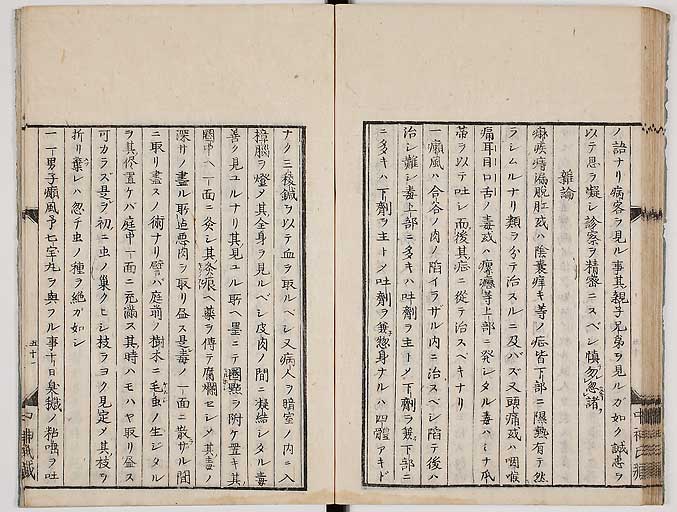 ノ語ナリ病客ヲ見ル事其親子兄弟ヲ見ルガ如ク誠忠ヲ
以テ思ヲ凝シ診察ヲ精密ニスベシ慎勿忽諸
雜論
痳疾痔漏脫肛或ハ陰囊痒キ等ノ症皆下部ニ隈熱有テ然
ラシムルナリ類ヲ分テ治スルニ及バズ又頭痛或ハ咽喉
痛耳目口舌ノ毒或ハ瘰癧等上部ニ発シタル毒ハミナ瓜
蒂ヲ以テ吐シ而後其症ニ從テ治スベキナリ
一癩風ハ合谷ノ肉ノ陷イラザル内ニ治スベシ陷テ後ハ
治シ難シ毒上部ニ多キハ吐劑ヲ主トメ下劑ヲ兼下部ニ
ニ多キハ下劑ヲ主トメ吐劑ヲ兼惣身ナルハ四體アキド
ナク三稜鍼ヲ以テ血ヲ取ルベシ又病人ヲ暗室ノ内ニ入
樟腦ヲ燈メ其全身ヲ見ルベシ皮肉ノ間ニ凝結シタル毒
善ク見ユルナリ其見ユル所ヘ墨ニテ圏點ヲ附ケ置キ其
圏中ヘ一面ニ灸シ其灸痕ヘ藥ヲ傅テ腐爛セシメ其毒ノ
深サノ盡ル所迠悪肉ヲ取リ盡ス是毒ノ一面ニ散ザル間
ニ取リ盡スノ術ナリ譬バ庭前ノ樹木ニ毛虫ノ生シタル
ヲ其侭置ケバ庭中一面ニ充満ス其時ハモハヤ取リ盡ス
可カラズ是ヲ初ニ虫ノ巢クヒシ枝ヲヨク見定メ其枝ヲ
折リ棄レハ忽テ虫ノ種ヲ絶ガ如シ
一一男子癩風予七宝丸ヲ與フル事十日臭穢ノ粘唾ヲ吐
五十一